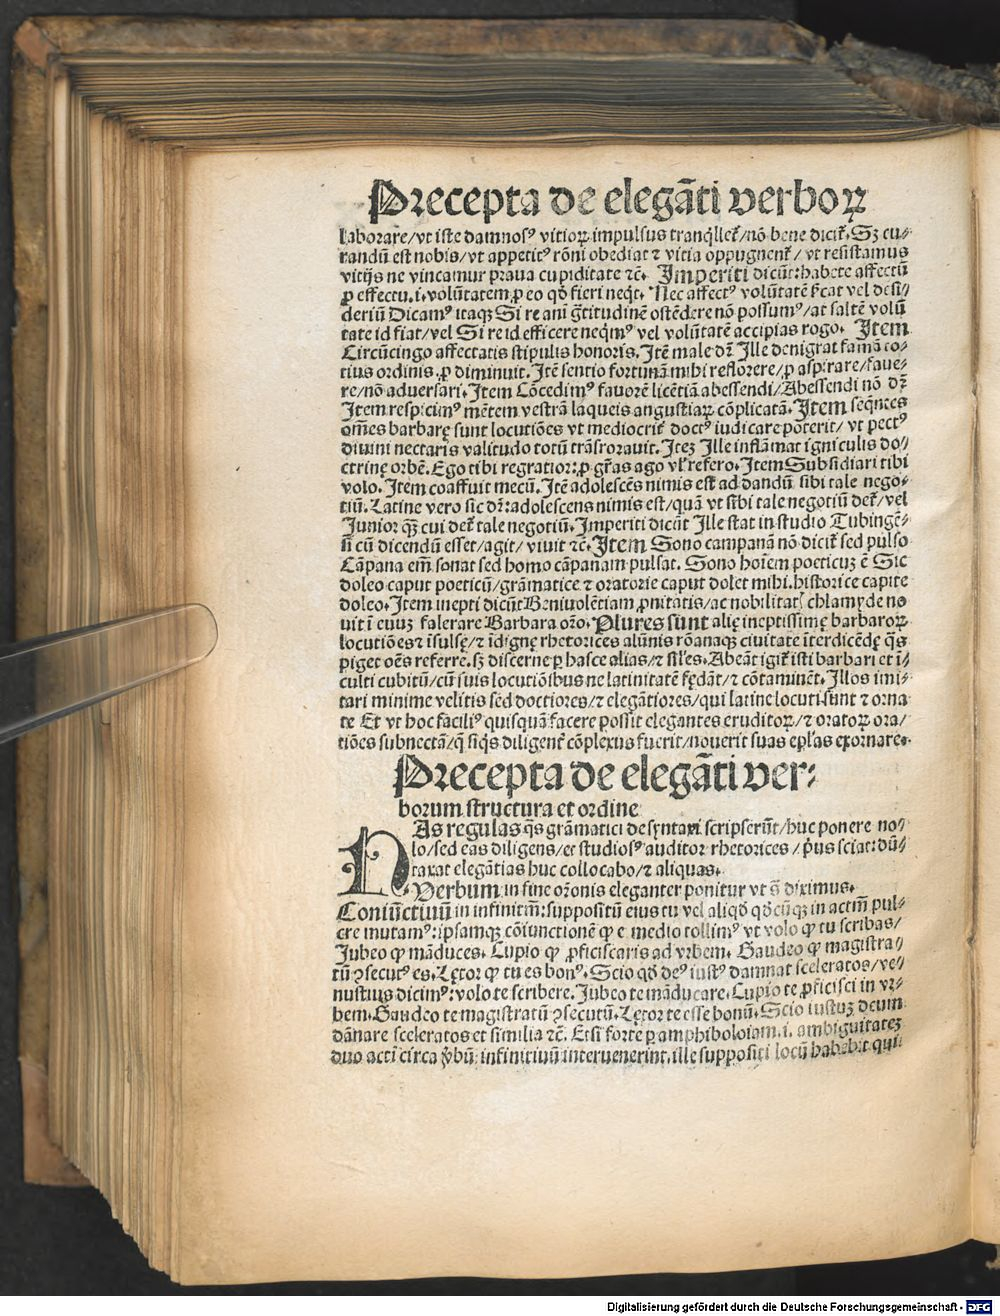 Precepta de elegãti verboꝝ
laborare/vt iste damnosꝰ vitioꝝ impulsus tranq̃lletᷣ/nõ bene dicitᷣ. Sꝫ cu⸗
randũ est nobis/vt appetitꝰ rõni obediat ⁊ vitia oppugnentᷣ/ vt resistamus
vitijs ne vincamur praua cupiditate ⁊c̃. Imperiti dicũt: habete affectũ
ꝓ effectu .i. volũtatem, ꝓ eo qđ fieri neq̃t. Nec affectꝰ volũtatẽ
deriũ Dicamꝰ itaqꝫ Si re ani g̃titudinẽ ostẽdere nõ possumꝰ/at saltẽ volũ
tate id fiat/vel Si re id efficere neq̃mꝰ vel volũtatẽ accipias rogo. Item
Circũcingo affectatis stipulis honoris. Itẽ male dr̃ Ille denigrat famã to⸗
tius ordinis, ꝓ diminuit. Itẽ sentio fortunã mihi reflorere/ꝓ aspirare/faue⸗
re/nõ aduersari. Item Cõcedimꝰ fauorẽ licẽtiã abessendi/Abessendi nõ dr̃
Item respicimꝰ mẽtem vestrã laqueis angustiaꝝ cõplicatã. Item seq̃ntes
om̃es barbarę sunt locutiões vt mediocritᷣ doctꝰ iudicare poterit/ vt pectꝰ
diuini nectaris valitudo totũ trãsrorauit. Iteꝫ Ille inflãmat igniculis do⸗
ctrinę orbẽ. Ego tibi regratior: ꝓ gr̃as ago vl̓ refero. Item Subsidiari tibi
volo. Item coaffuit mecũ. Itẽ adolescẽs nimis est ad dandũ sibi tale nego⸗
tiũ. Latine vero sic dr̃: adolescens nimis est/quã vt sibi tale negotiũ detᷣ/vel
Junior qꝫ cui detᷣ tale negotiũ. Imperiti dicũt Ille stat in studio Tubingẽ⸗
si cũ dicendũ esset/agit/ viuit ⁊c̃. Item Sono campanã nõ dicitᷣ sed pulso
Cãpana em̃ sonat sed homo cãpanam pulsat. Sono hoĩem poeticuꝫ ẽ Sic
doleo caput poeticũ/grãmatice ⁊ oratorie caput dolet mihi. historice capite
doleo. Item inepti dicũt Beniuolẽtiam, ꝓnitatis/ac nobilitatꝭ chlamyde no
uit ĩ euuꝫ falerare Barbara or̃o. Plures sunt alię ineptissimę barbaroꝝ
locutiões ⁊ ĩsulsę/⁊ ĩdignę rhetorices alũnis rõanaqꝫ ciuitate ĩterdicẽdę q̃s
piget oẽs referre. sꝫ discerne ꝑ hasce alias/⁊ sil̓es. Abeãt igitᷣ isti barbari et ĩ⸗
culti cubitũ/cũ suis locutiõibus ne latinitatẽ fędãt/⁊ cõtaminẽt. Illos imi⸗
tari minime velitis sed doctiores/⁊ elegãtiores/qui latine locuti sunt ⁊ orna
te Et vt hoc faciliꝰ quisquã facere possit elegantes eruditoꝝ/⁊ oratoꝝ ora/
tiões subnectã/q̃ siq̃s diligentᷣ cõplexus fuerit/nouerit suas epl̓as exornare.
Precepta de elegãti ver⸗
borum structura et ordine
NAs regulas q̃s grãmatici de syntaxi scripserũt/huc ponere no⸗
lo/sed eas diligens/et studiosꝰ auditor rhetorices /p̃us sciat: dũ⸗
taxat elegãtias huc collocabo/⁊ aliquas.
Verbum in fine or̃onis eleganter ponitur vt s̃ diximus.
Coniũctiuũ in infinitũ: suppositũ eius tu vel aliqđ qđcũqꝫ in actm̃ pul⸗
cre mutamꝰ: ipsamqꝫ cõiunctionẽ ꝙ e medio tollimꝰ vt volo ꝙ tu scribas/
Jubeo ꝙ mãduces. Cupio ꝙ ꝓficiscaris ad vrbem. Gaudeo ꝙ magistra⸗
tũ ꝯsecutꝰ es. Lętor ꝙ tu es bonꝰ. Scio qđ deꝰ iustꝰ damnat sceleratos/ve⸗
nustius dicimꝰ: volo te scribere. Jubeo te mãducare. Cupio te ꝓficisci in vr⸗
bem. Gaudeo te magistratũ ꝯsecutũ. Lętor te esse bonũ. Scio iustuꝫ deum
dãnare sceleratos et similia ⁊c̃. Etsi forte ꝑ amphiboloiam .i. ambiguitateꝫ
duo acti circa ṽbũ infinitiuũ interuenerint, ille suppositi locũ habebit qui
Digitalisierung gefördert durch die Deutsche Forschungsgemeinschaft - DFG